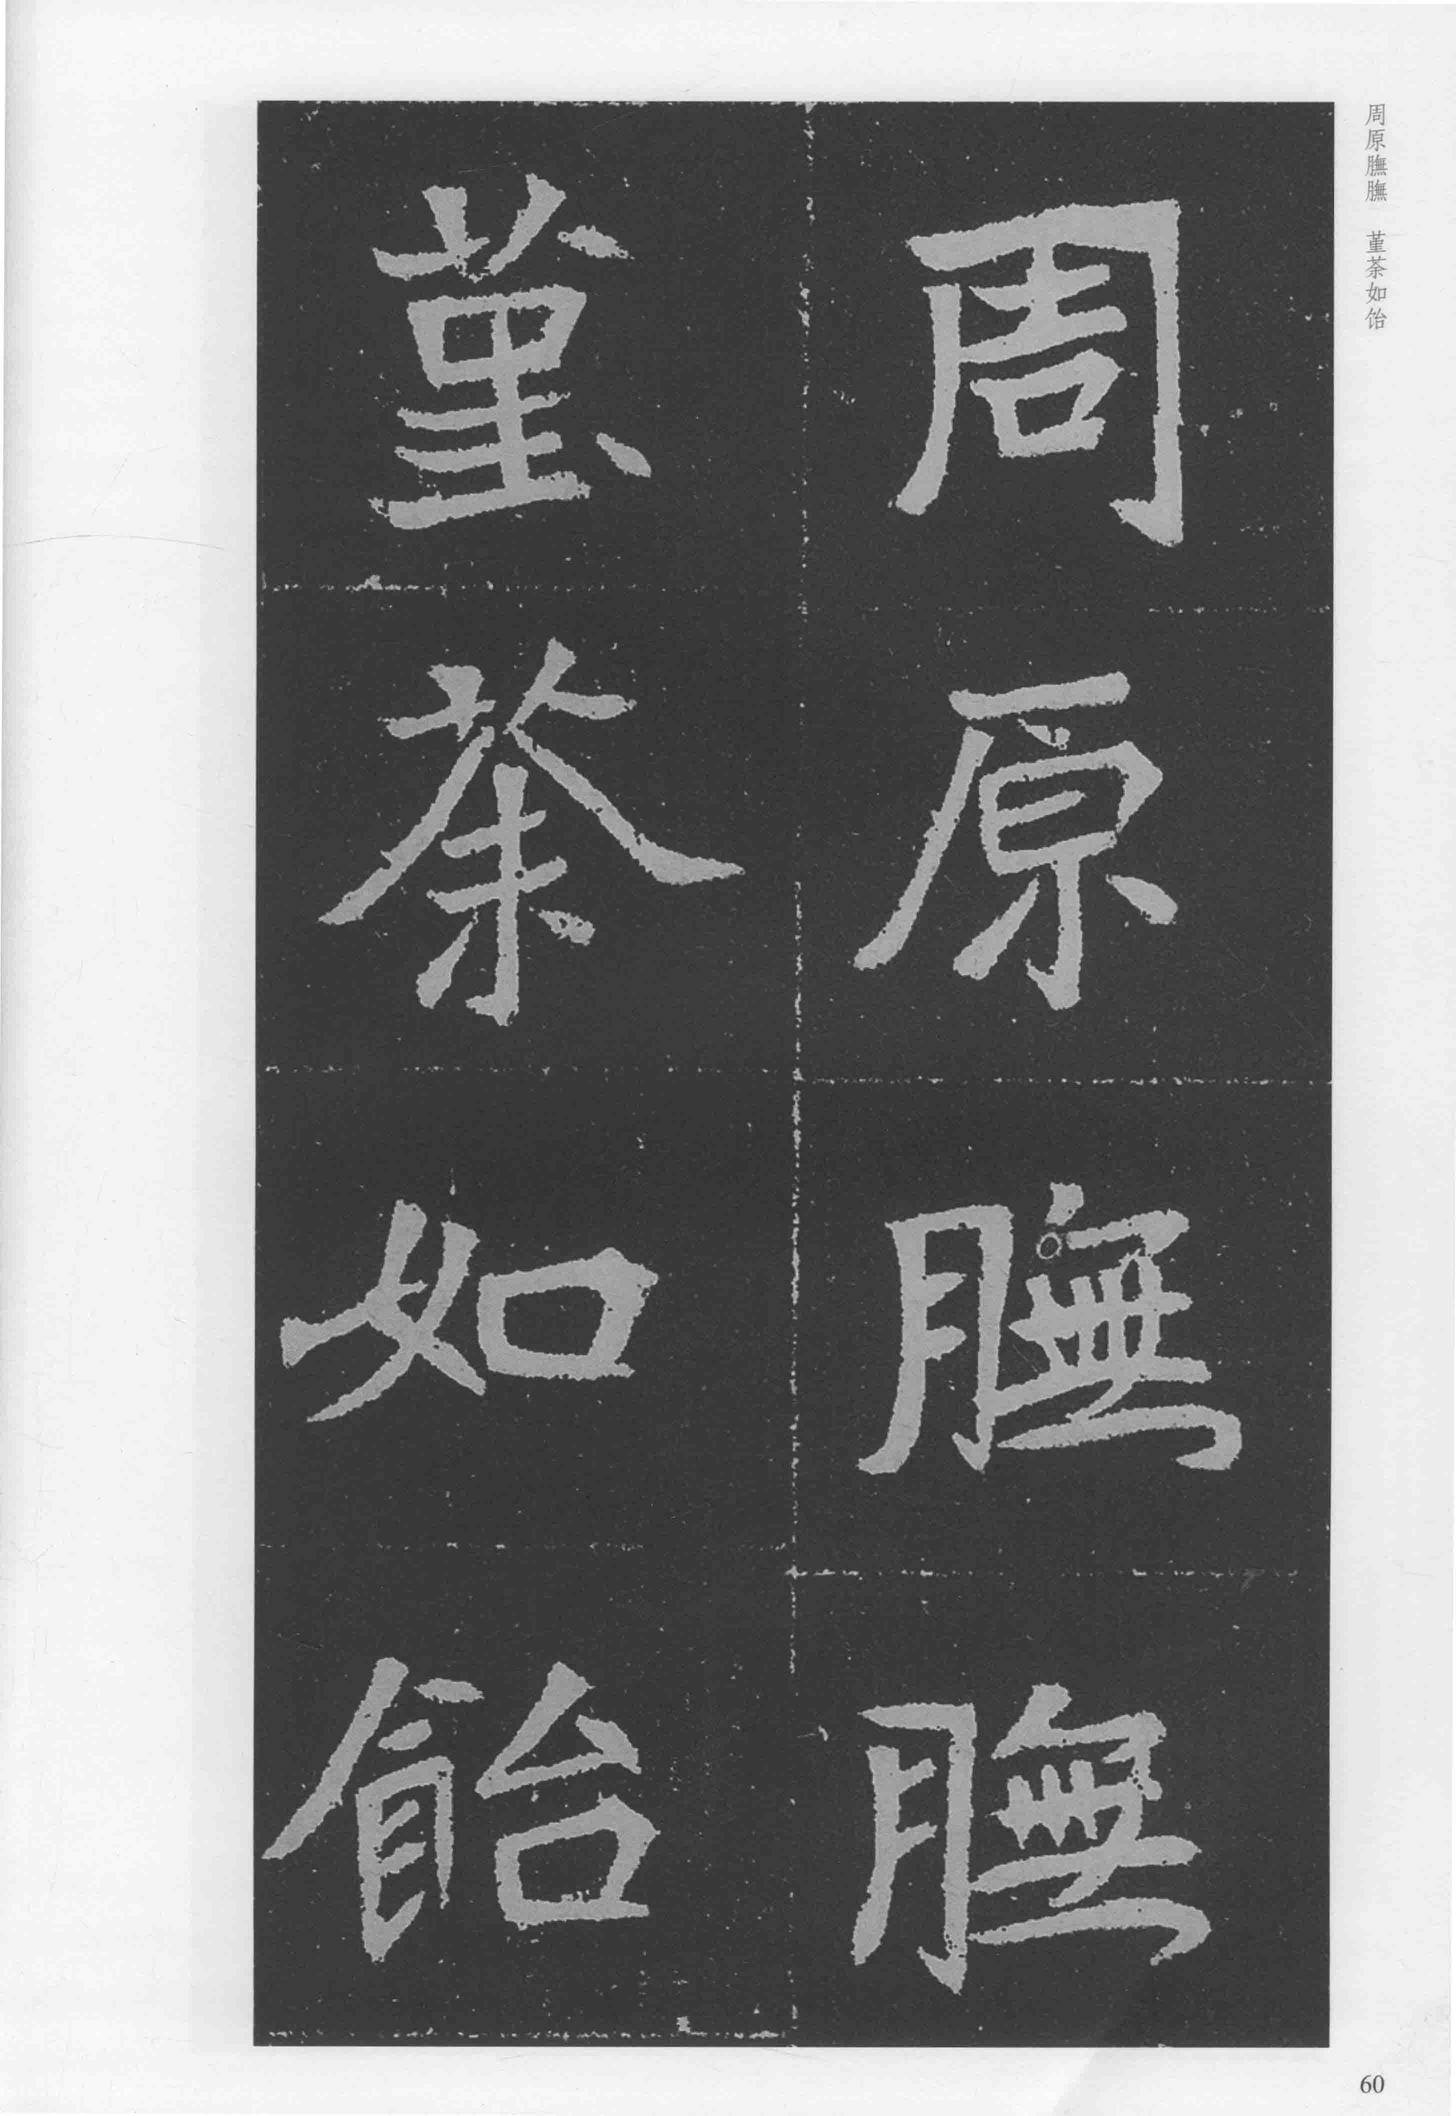 周原膴膴 堇荼如饴
周原膴膴
堇荼如飴
60